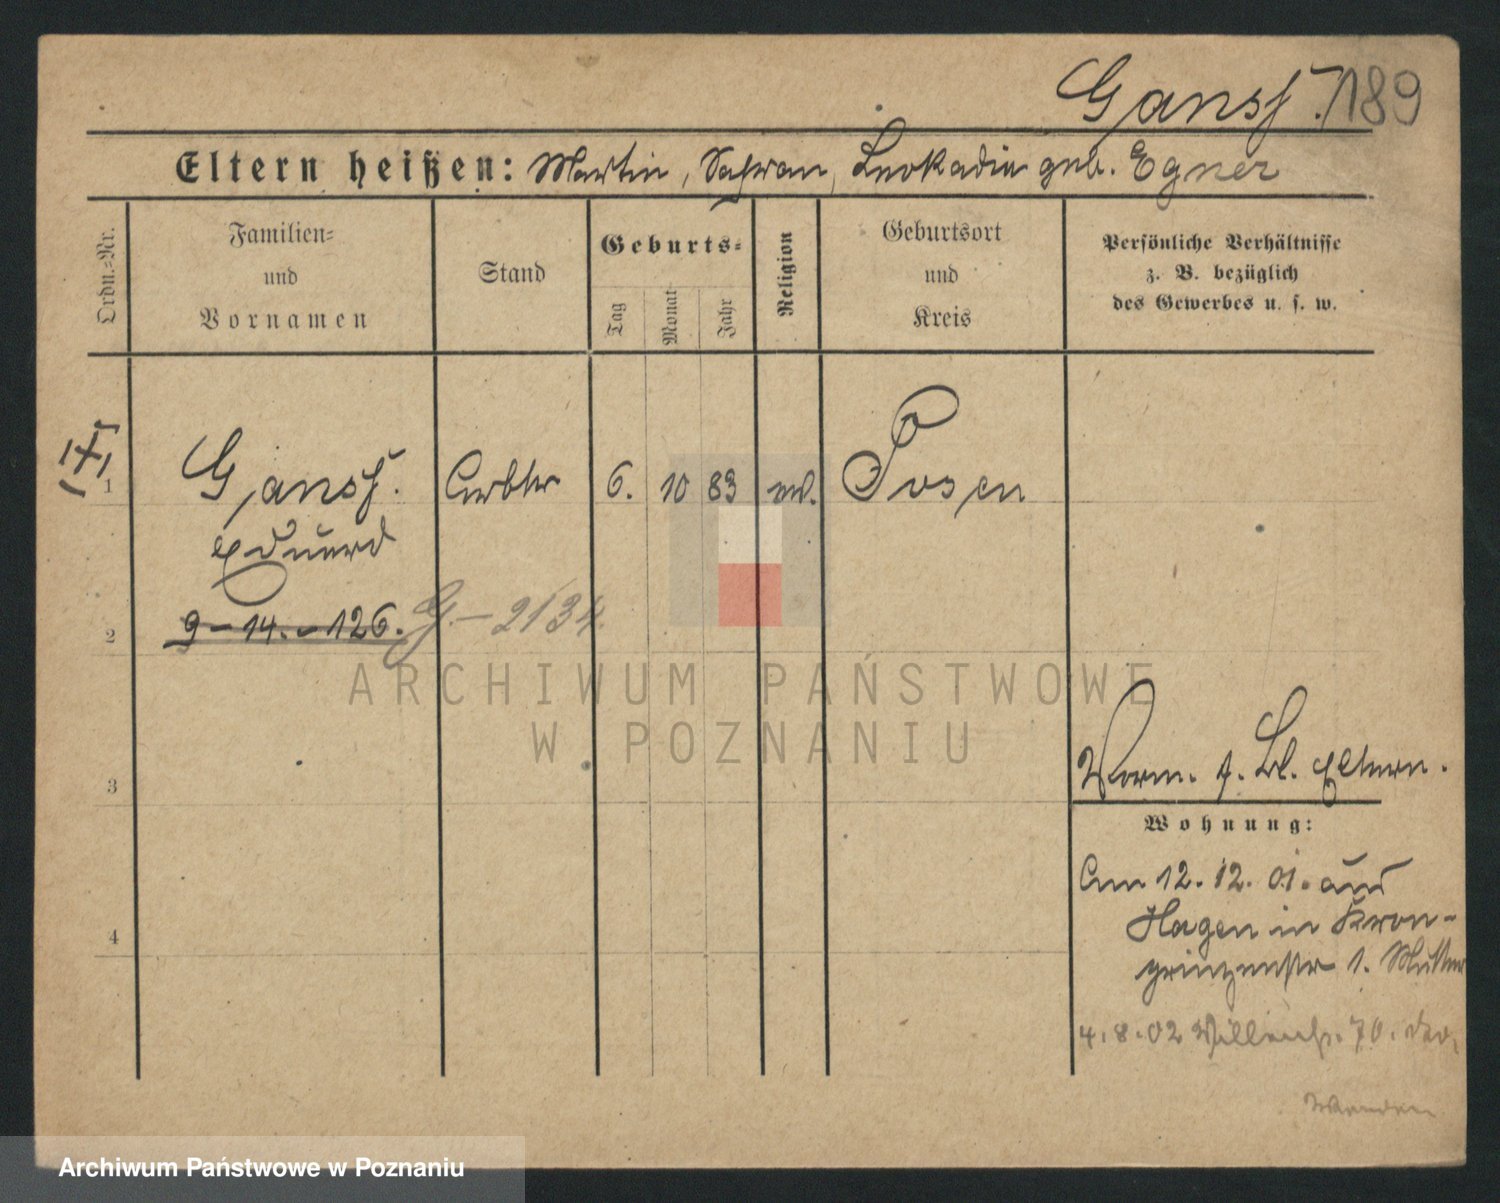 Gansf. 189
Eltern heißen: Martin, Safran, Leokadia geb. Egner
Ordn.-Nr.
Familien-
und
Vornamen
Stand
Geburts-
Tag
Monat
Jahr
Religion
Geburtsort
und
Kreis
Persönliche Verhältnisse
z. B. bezüglich
des Gewerbes u. s. w.
1 Gansf. Arbtr 6. 10 83 Posen
Eduard
2 9-14.-126. G.-2134.
3
Eltern.
Wohnung:
Am 12. 12. 01. aus
Hagen in Kron-
prinzenstr 1. Mutter
4
4. 8. 02 70.
ARCHIWUM PAŃSTWOWE
W POZNANIU
Archiwum Państwowe w Poznaniu